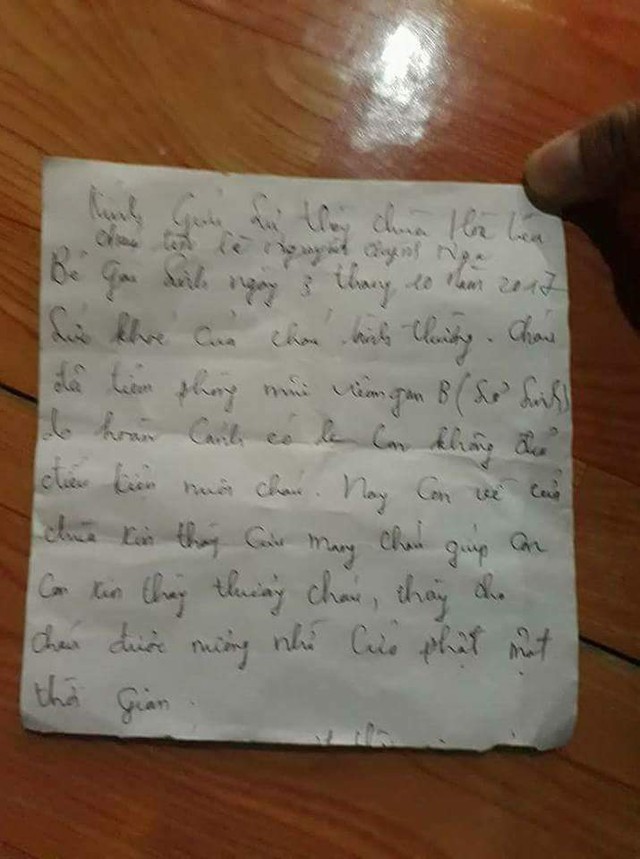 Kính Gửi Sư thầy chùa
cháu tên Lê Nguyễn Quỳnh Nga
Bé Gái Sinh ngày 3 tháng 10 năm 2017
Sức khoẻ của cháu bình thường. Cháu
đã tiêm phòng mũi viêm gan B (Sơ Sinh)
do hoàn Cảnh éo le Con không đủ
điều kiện nuôi cháu. Nay Con về cửa
chùa xin thầy Cưu mang cháu giúp con
Con xin thầy thương cháu, thầy cho
cháu được nương nhờ Cửa phật một
thời Gian.